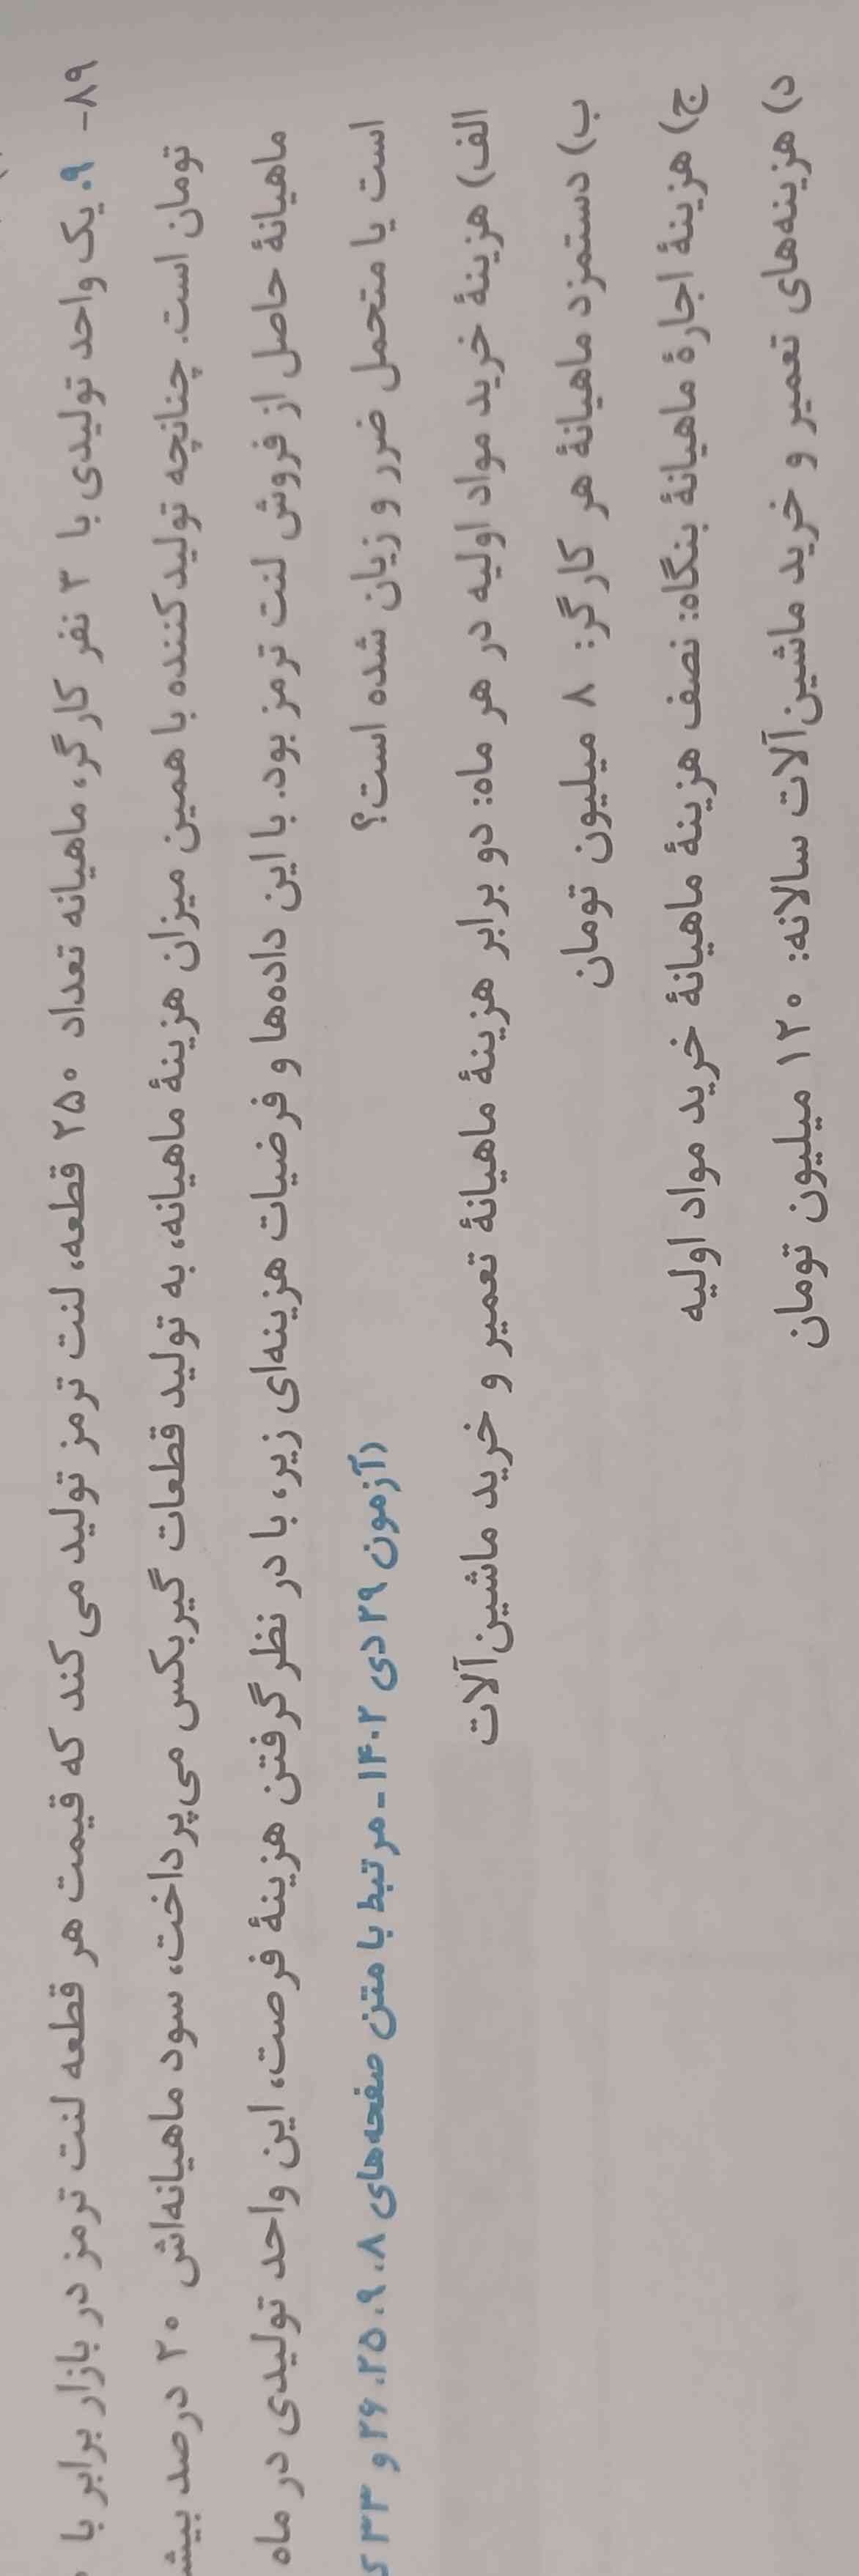 ۸۹- ۹. یک واحد تولیدی با ۳ نفر کارگر، ماهیانه تعداد ۲۵۰ قطعه، لنت ترمز تولید می‌کند که قیمت هر قطعه لنت ترمز در بازار برابر با
تومان است. چنانچه تولیدکننده با همین میزان هزینهٔ ماهیانه، به تولید قطعات گیربکس می‌پرداخت، سود ماهیانه‌اش ۲۰ درصد
ماهیانهٔ حاصل از فروش لنت ترمز بود. با این داده‌ها و فرضیات هزینه‌ای زیر، با در نظر گرفتن هزینهٔ فرصت، این واحد تولیدی در ماه
است یا متحمل ضرر و زیان شده است؟ (آزمون ۲۹ دی ۱۴۰۲ - مرتبط با متن صفحه‌های ۸، ۹، ۲۵، ۲۶ و ۳۳
الف) هزینهٔ خرید مواد اولیه در هر ماه: دو برابر هزینهٔ ماهیانهٔ تعمیر و خرید ماشین‌آلات
ب) دستمزد ماهیانهٔ هر کارگر: ۸ میلیون تومان
ج) هزینهٔ اجارهٔ ماهیانهٔ بنگاه: نصف هزینهٔ ماهیانهٔ خرید مواد اولیه
د) هزینه‌های تعمیر و خرید ماشین‌آلات سالانه: ۱۲۰ میلیون تومان